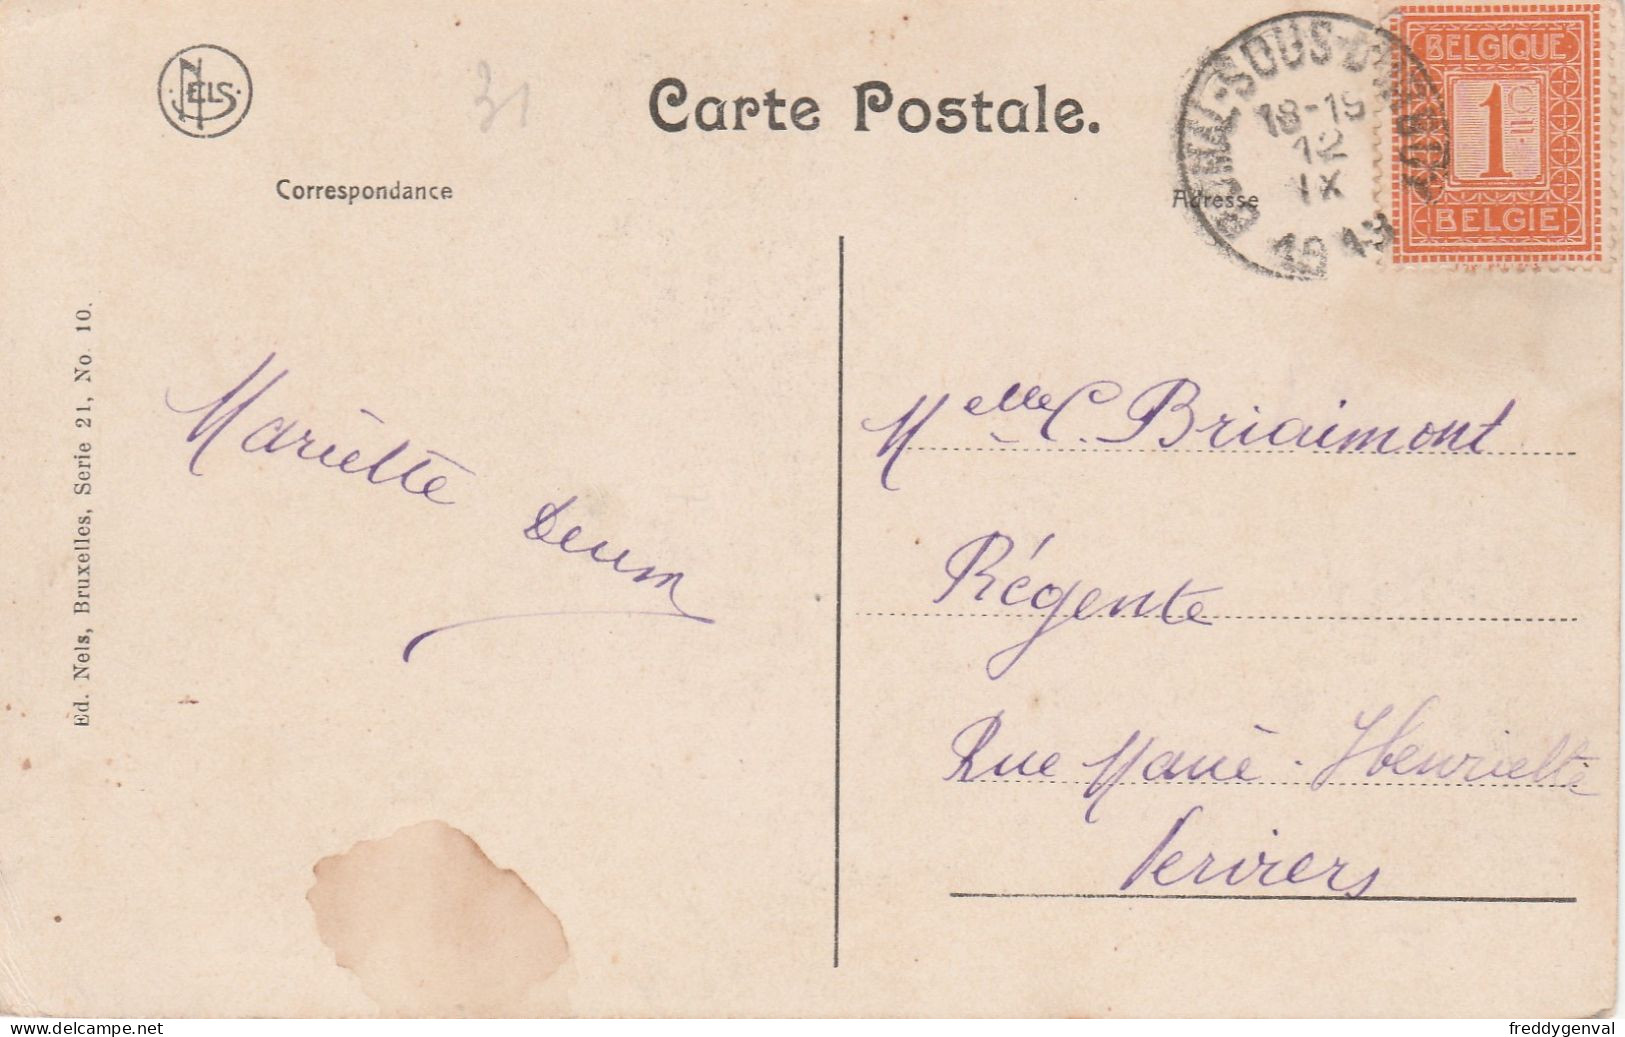 NELS
31
Carte Postale.
Correspondance
Adresse
BOMAL-SOUS-DURBUY
18-19
12
IX
1913
BELGIQUE
1 C
BELGIË
Ed. Nels, Bruxelles, Serie 21, No. 10.
Mariette
Melle C Briaimont
Régente
Rue Marie-Henriette
Verviers
freddygenval
www.delcampe.net